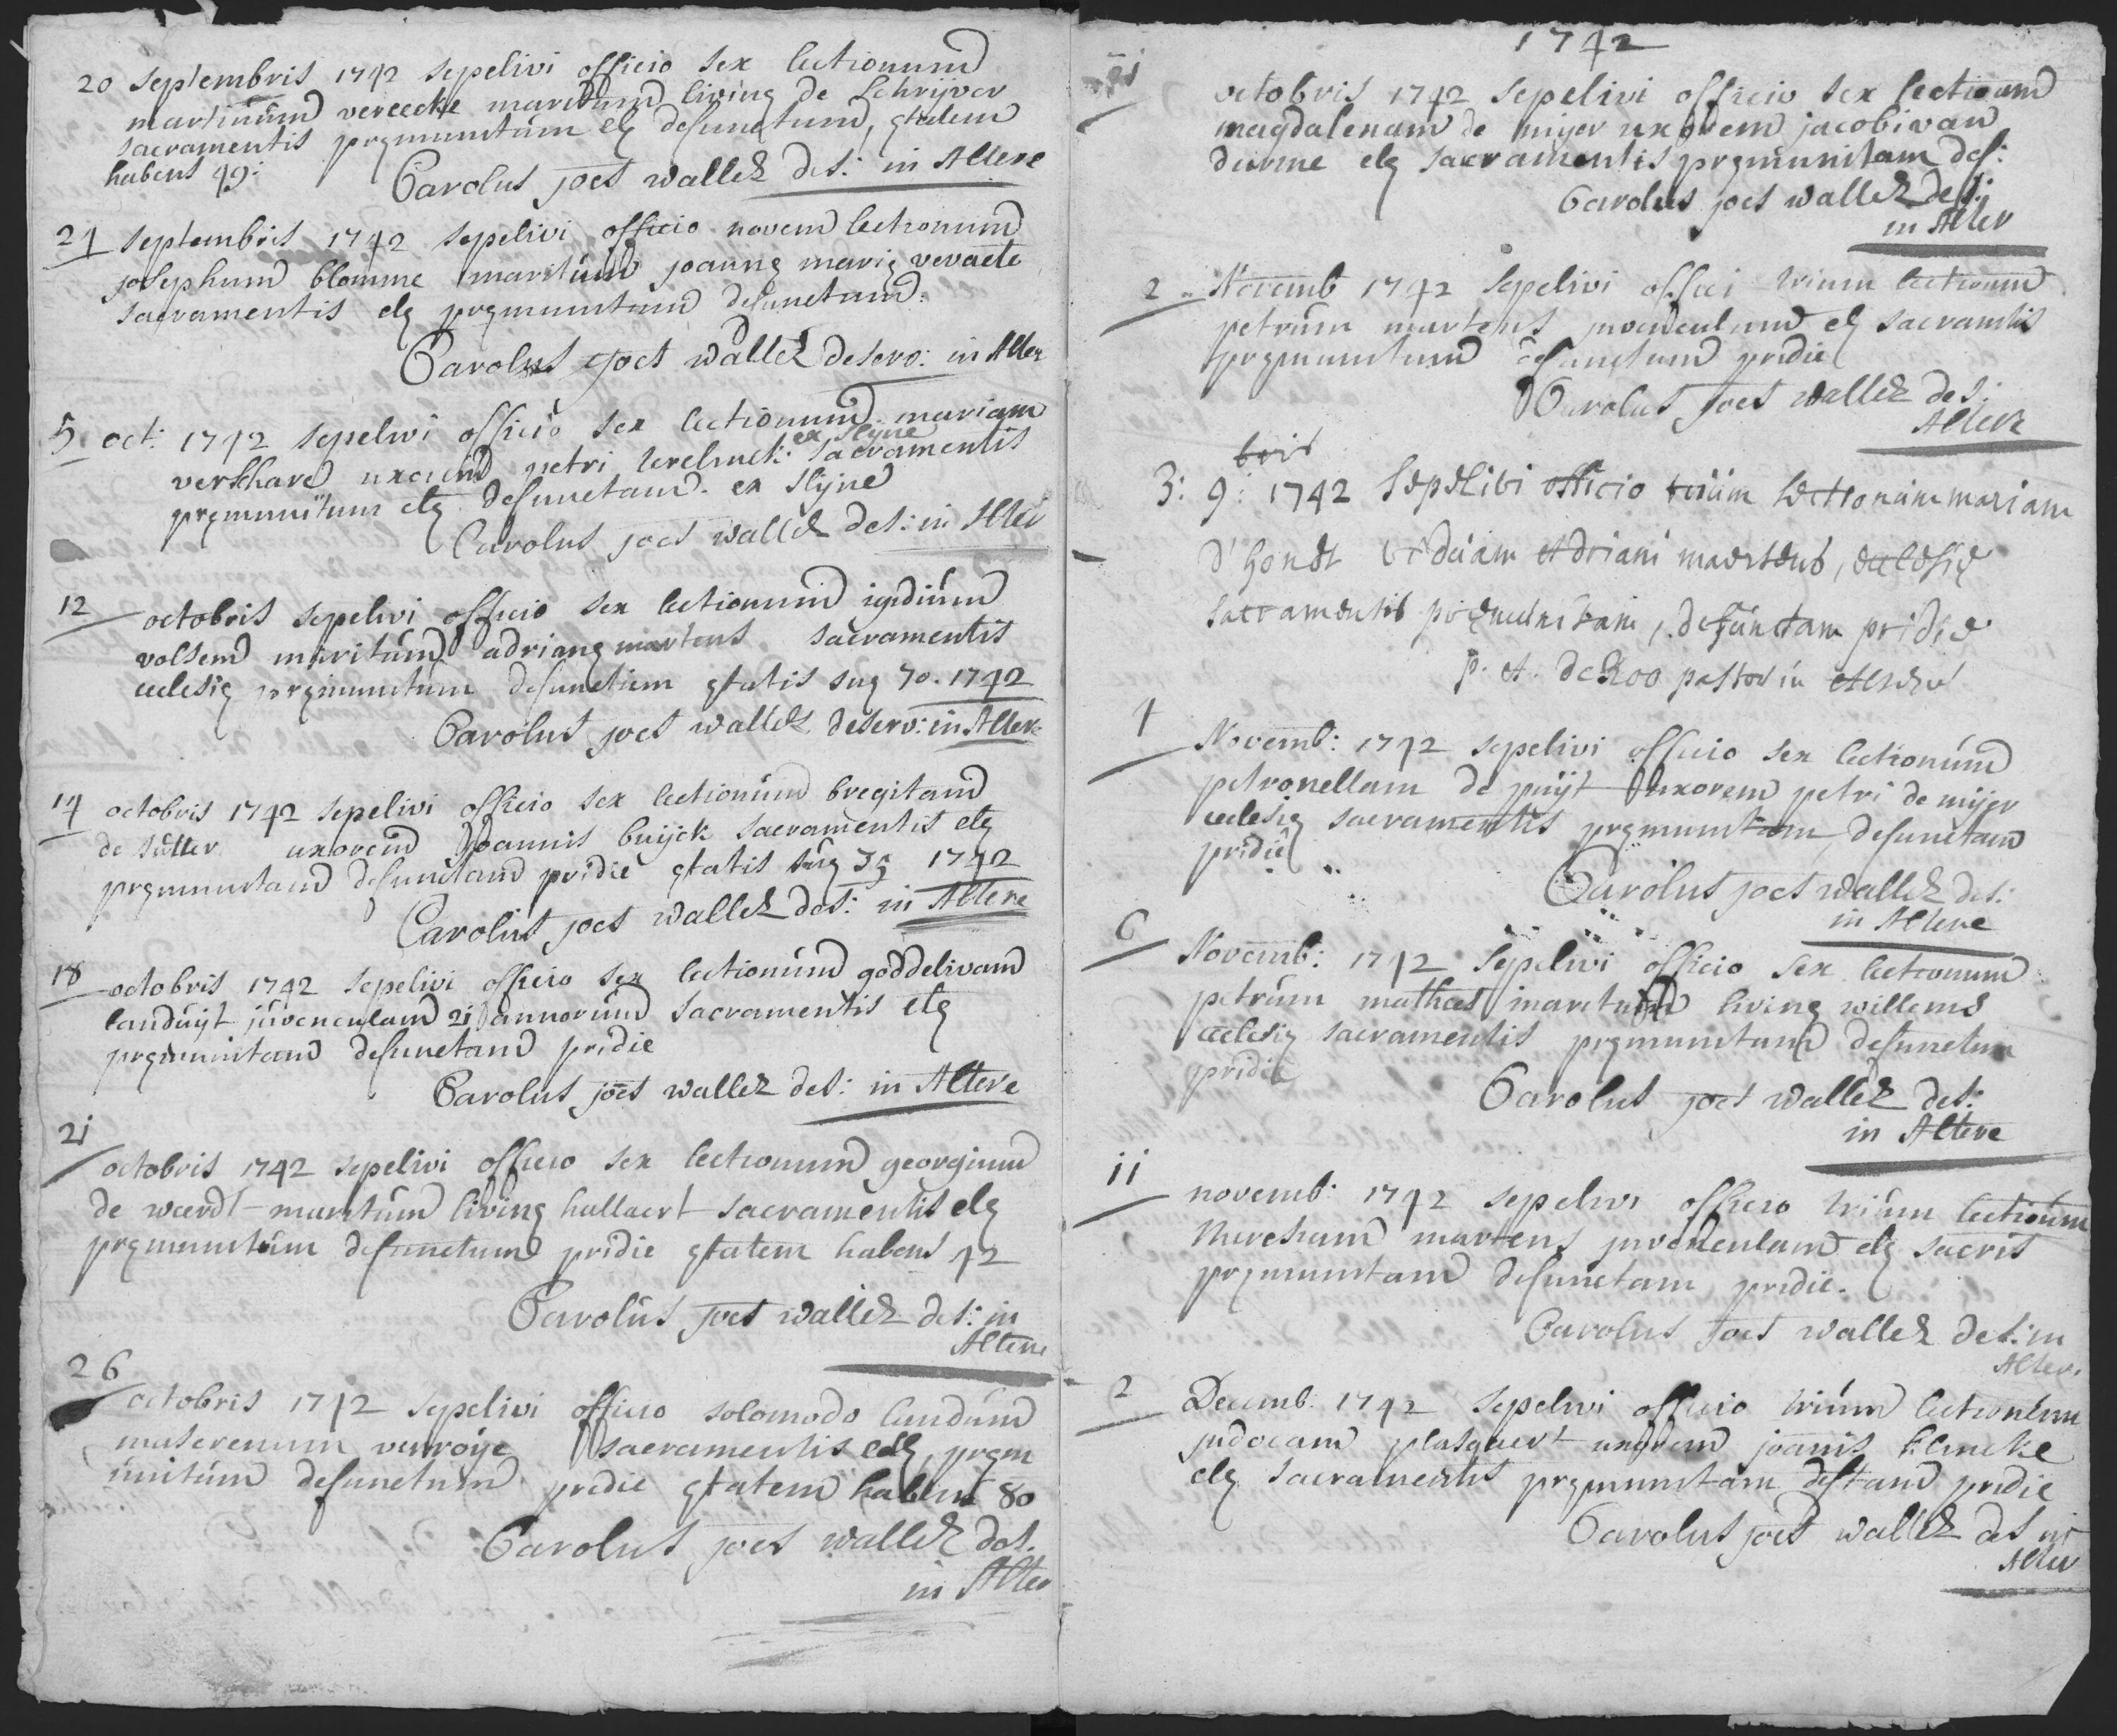 20 septembris 1742 sepelivi officio sex lectionum
martinum vereecke maritum livinę de schrijver
sacramentis pręmunitum elę defunctum, ętatem
habens 49:
Carolus joēs wallez des: in Altere
24 septembris 1742 sepelivi officio novem lectionum
josephum blomme maritum joannę marię vervaete
sacramentis elę pręmunitum defunctum.
Carolus joēs wallez deserv: in Alter
5 oct: 1742 sepelivi officio sex lectionum mariam
ex slijne
verschare uxorem petri sacramentis
pręmunitum elę defunctam. ex slijne
Carolus joēs wallez des: in Alter
12
octobris sepelivi officio sex lectionum igidium
volsem maritum adrianę martens sacramentis
eclesię pręmunitum defunctum ętatis suę 70. 1742
Carolus joēs wallez deserv: in Altere
14 octobris 1742 sepelivi officio sex lectionum bregitam
de sutter uxorem Joannis buijck sacramentis elę
pręmunitam defunctam pridie ętatis suę 35 1742
Carolus joēs wallez des: in Altere
18 octobris 1742 sepelivi officio sex lectionum goddelivam
landuijt juvenculam 21 annorum sacramentis elę
pręmunitam defunctam pridie
Carolus joēs wallez des: in Altere
21
octobris 1742 sepelivi officio sex lectionum georgium
de weerdt maritum livinę hallaert sacramentis elę
pręmunitum defunctum pridie ętatem habens 42
Carolus joēs wallez des: in
Altere
26
octobris 1742 sepelivi officio solomodo
verroije sacramentis elę pręm
unitum defunctum pridie ętatem habens 80
Carolus joēs wallez des.
in Alter
1742
21
octobris 1742 sepelivi officio sex lectionum
magdalenam de mijer uxorem jacobi van
durme elę sacramentis pręmunitam def:
Carolus joēs wallez des:
in Alter
2 Novemb 1742 sepelivi offici trium lectionum
petrum martens juvenculum elę sacramtis
pręmunitum defunctum pridie
Carolus joēs wallez des:
Altere
bris
3: 9: 1742 sepelivi officio trium lectionum mariam
d'hondt viduam Adriani maertens, ecclesię
sacramentis pręmunitam, defunctam pridie
p. A. de Roo pastor in Altere
4
Novemb: 1742 sepelivi officio sex lectionum
petronellam de puijt uxorem petri de mijer
eclesię sacramentis pręmunitam, defunctam
pridie
Carolus joēs wallez des:
in Altere
6
Novemb: 1742 sepelivi officio sex lectionum
petrum mathees maritum livinę willems
eclesię sacramentis pręmunitum defunctum
pridie
Carolus joēs wallez des:
in Altere
11
novemb: 1742 sepelivi officio trium lectionum
theresiam martens juvenculam elę sacris
pręmunitam defunctam pridie.
Carolus joēs wallez des: in
Alter.
2 Decemb: 1742 sepelivi officio trium lectionum
judocam plasqaert uxorem joānis
elę sacramentis pręmunitam deftam pridie
Carolus joēs wallez des in
Alter